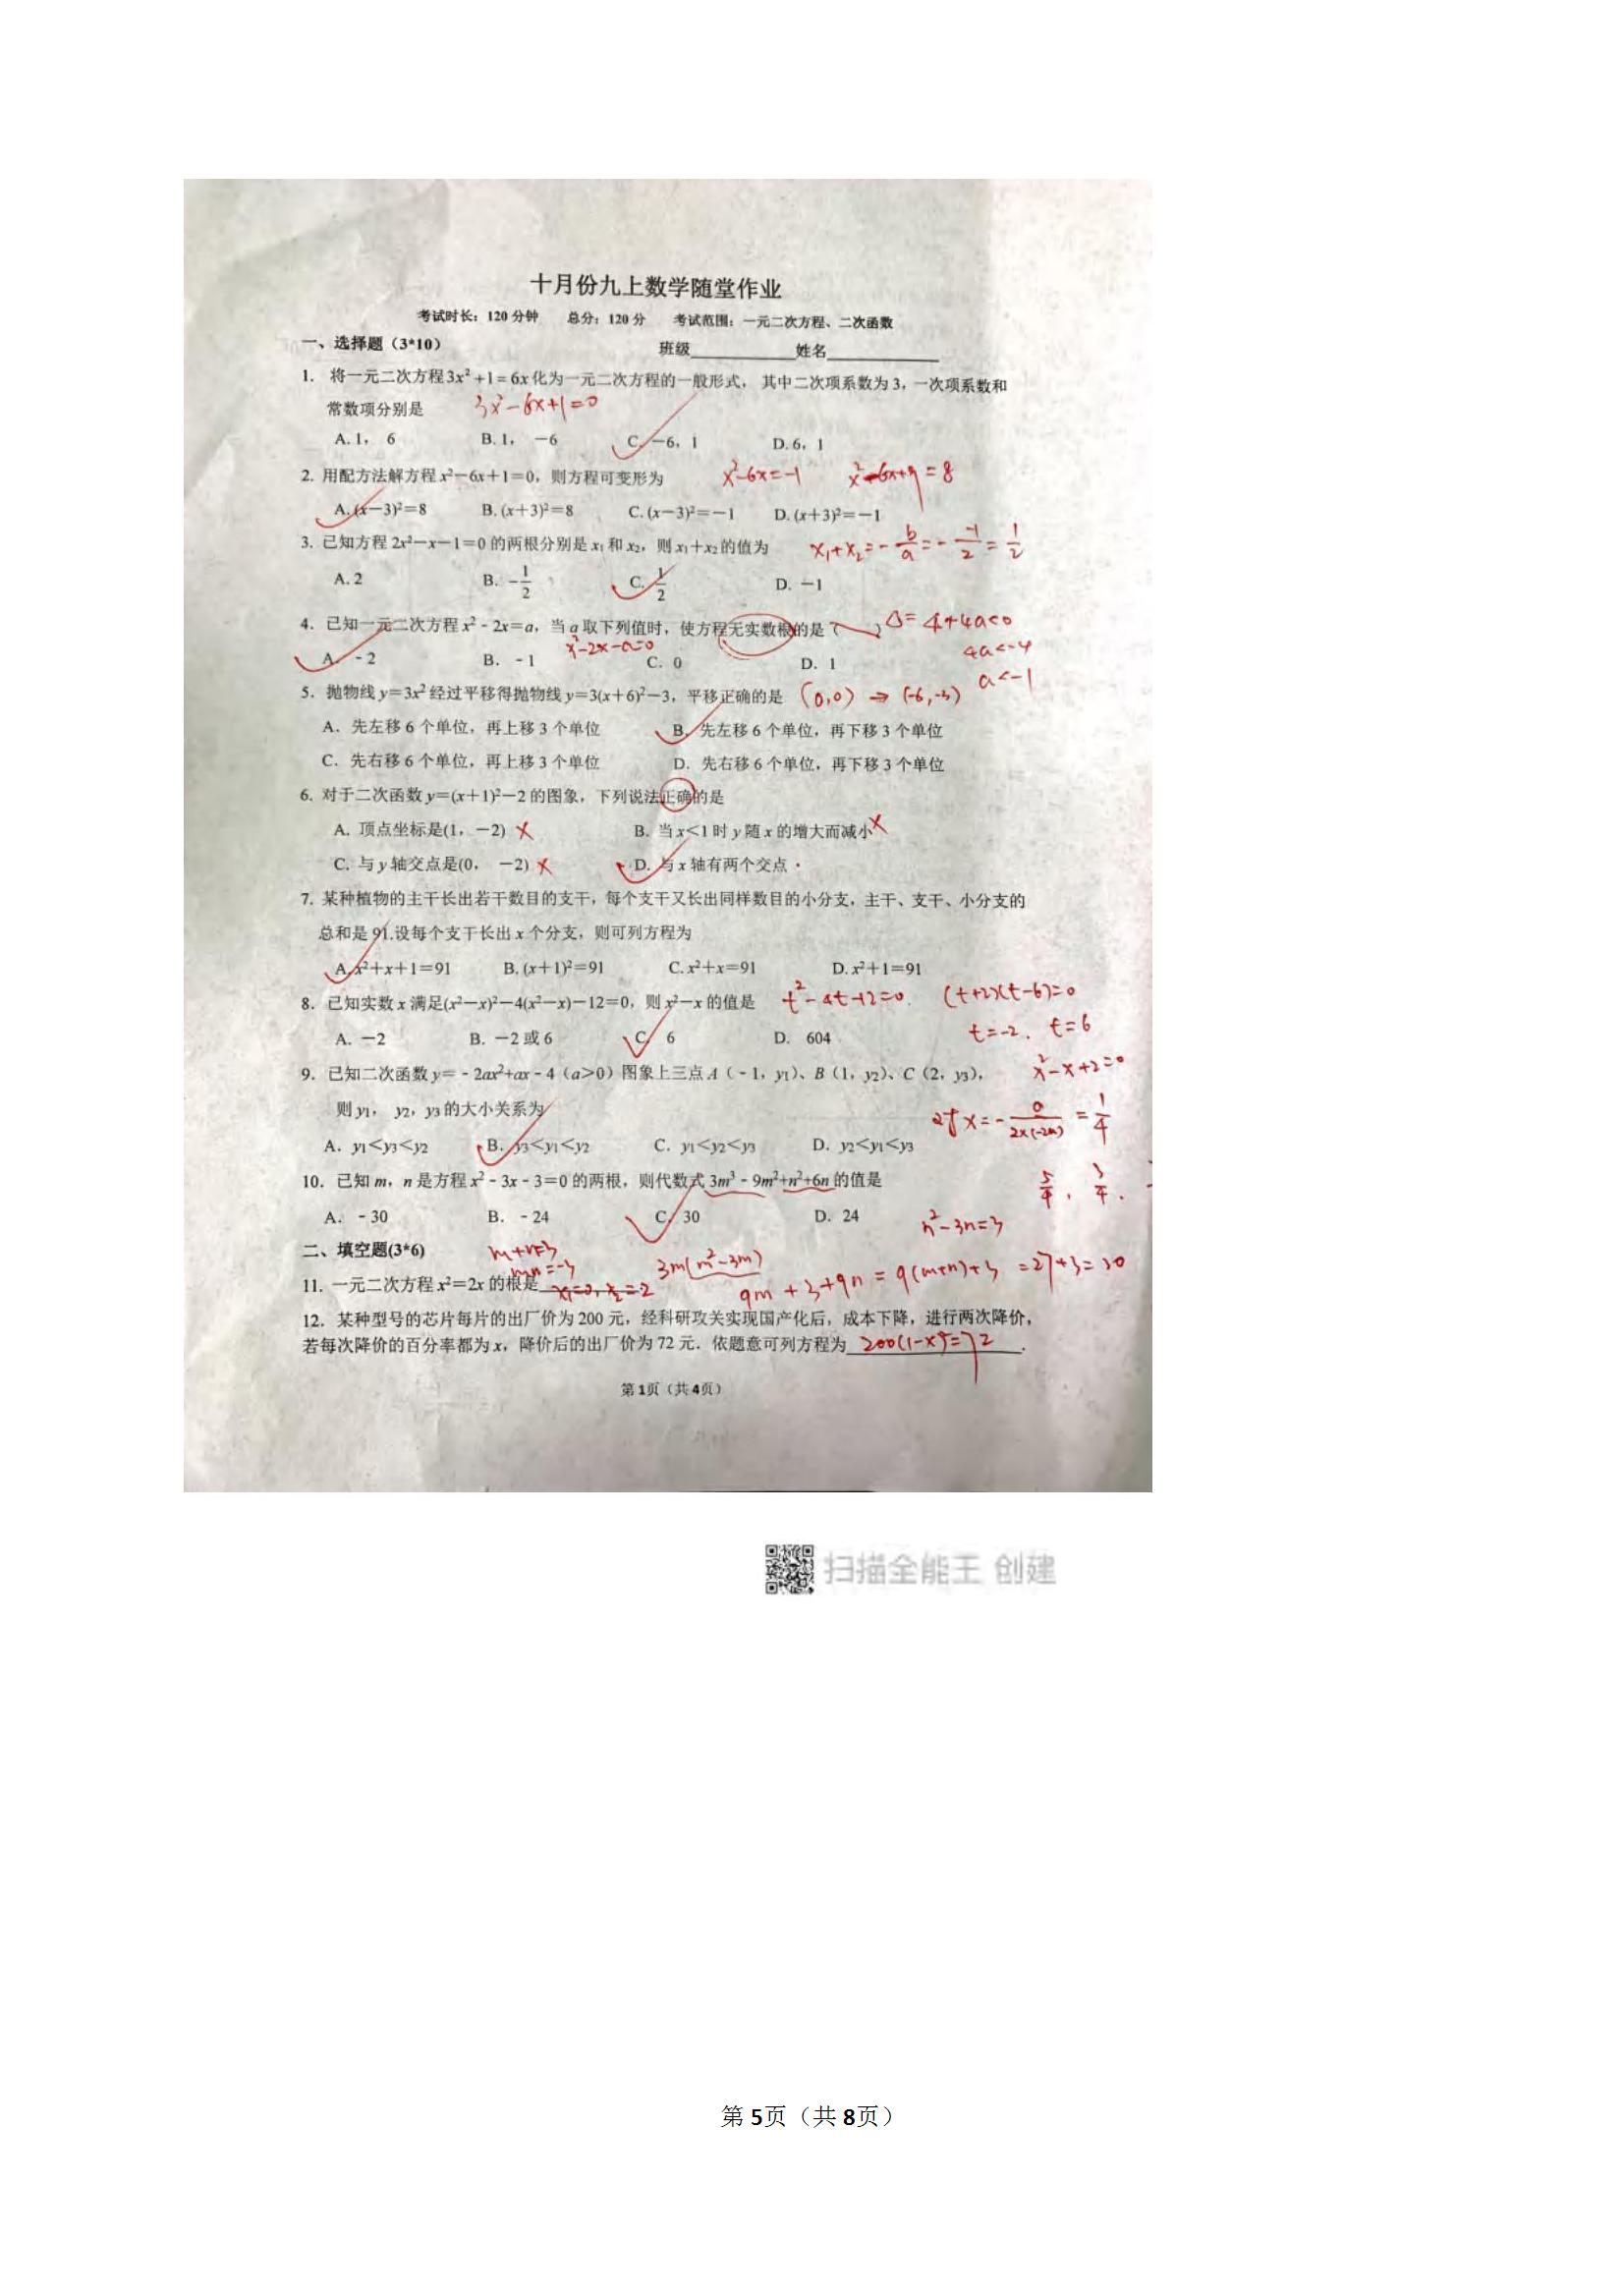 十月份九上数学随堂作业
考试时长：120 分钟 总分：120 分 考试范围：一元二次方程、二次函数
一、选择题（3*10） 班级__________姓名__________
1. 将一元二次方程 3x²+1=6x 化为一元二次方程的一般形式，其中二次项系数为 3，一次项系数和
常数项分别是 3x²-6x+1=0
A. 1， 6 B. 1， -6 C. -6，1 D. 6，1
2. 用配方法解方程 x²-6x+1=0，则方程可变形为 x²-6x=-1 x²-6x+9=8
A. (x-3)²=8 B. (x+3)²=8 C. (x-3)²=-1 D. (x+3)²=-1
3. 已知方程 2x²-x-1=0 的两根分别是 x₁ 和 x₂，则 x₁+x₂ 的值为 x₁+x₂=-b/a=-(-1)/2=1/2
A. 2 B. -1/2 C. 1/2 D. -1
4. 已知一元二次方程 x²-2x=a，当 a 取下列值时，使方程无实数根的是（ ） Δ=4+4a<0
x²-2x-a=0 4a<-4
A. -2 B. -1 C. 0 D. 1
a<-1
5. 抛物线 y=3x² 经过平移得抛物线 y=3(x+6)²-3，平移正确的是 (0,0) → (-6,-3)
A. 先左移 6 个单位，再上移 3 个单位 B. 先左移 6 个单位，再下移 3 个单位
C. 先右移 6 个单位，再上移 3 个单位 D. 先右移 6 个单位，再下移 3 个单位
6. 对于二次函数 y=(x+1)²-2 的图象，下列说法正确的是
A. 顶点坐标是(1，-2) × B. 当 x<1 时 y 随 x 的增大而减小 ×
C. 与 y 轴交点是(0， -2) × D. 与 x 轴有两个交点
7. 某种植物的主干长出若干数目的支干，每个支干又长出同样数目的小分支，主干、支干、小分支的
总和是 91.设每个支干长出 x 个分支，则可列方程为
A. x²+x+1=91 B. (x+1)²=91 C. x²+x=91 D. x²+1=91
8. 已知实数 x 满足(x²-x)²-4(x²-x)-12=0，则 x²-x 的值是 t²-4t-12=0. (t+2)(t-6)=0
A. -2 B. -2 或 6 C. 6 D. 604 t=-2. t=6
x²-x+2=0
9. 已知二次函数 y=-2ax²+ax-4（a>0）图象上三点 A（-1，y₁）、B（1，y₂）、C（2，y₃），
则 y₁， y₂，y₃ 的大小关系为 x=-a/(2×(-2a))=1/4
A. y₁<y₃<y₂ B. y₃<y₁<y₂ C. y₁<y₂<y₃ D. y₂<y₁<y₃
10. 已知 m，n 是方程 x²-3x-3=0 的两根，则代数式 3m³-9m²+n²+6n 的值是 5/4，3/4.
A. -30 B. -24 C. 30 D. 24 n²-3n=3
二、填空题(3*6) m+n=3
mn=-3 3m(m²-3m)
11. 一元二次方程 x²=2x 的根是 x₁=0, x₂=2 9m+3+9n=9(m+n)+3=27+3=30
12. 某种型号的芯片每片的出厂价为 200 元，经科研攻关实现国产化后，成本下降，进行两次降价，
若每次降价的百分率都为 x，降价后的出厂价为 72 元．依题意可列方程为 200(1-x)²=72．
第 1页（共 4页）
扫描全能王 创建
第 5页（共 8页）